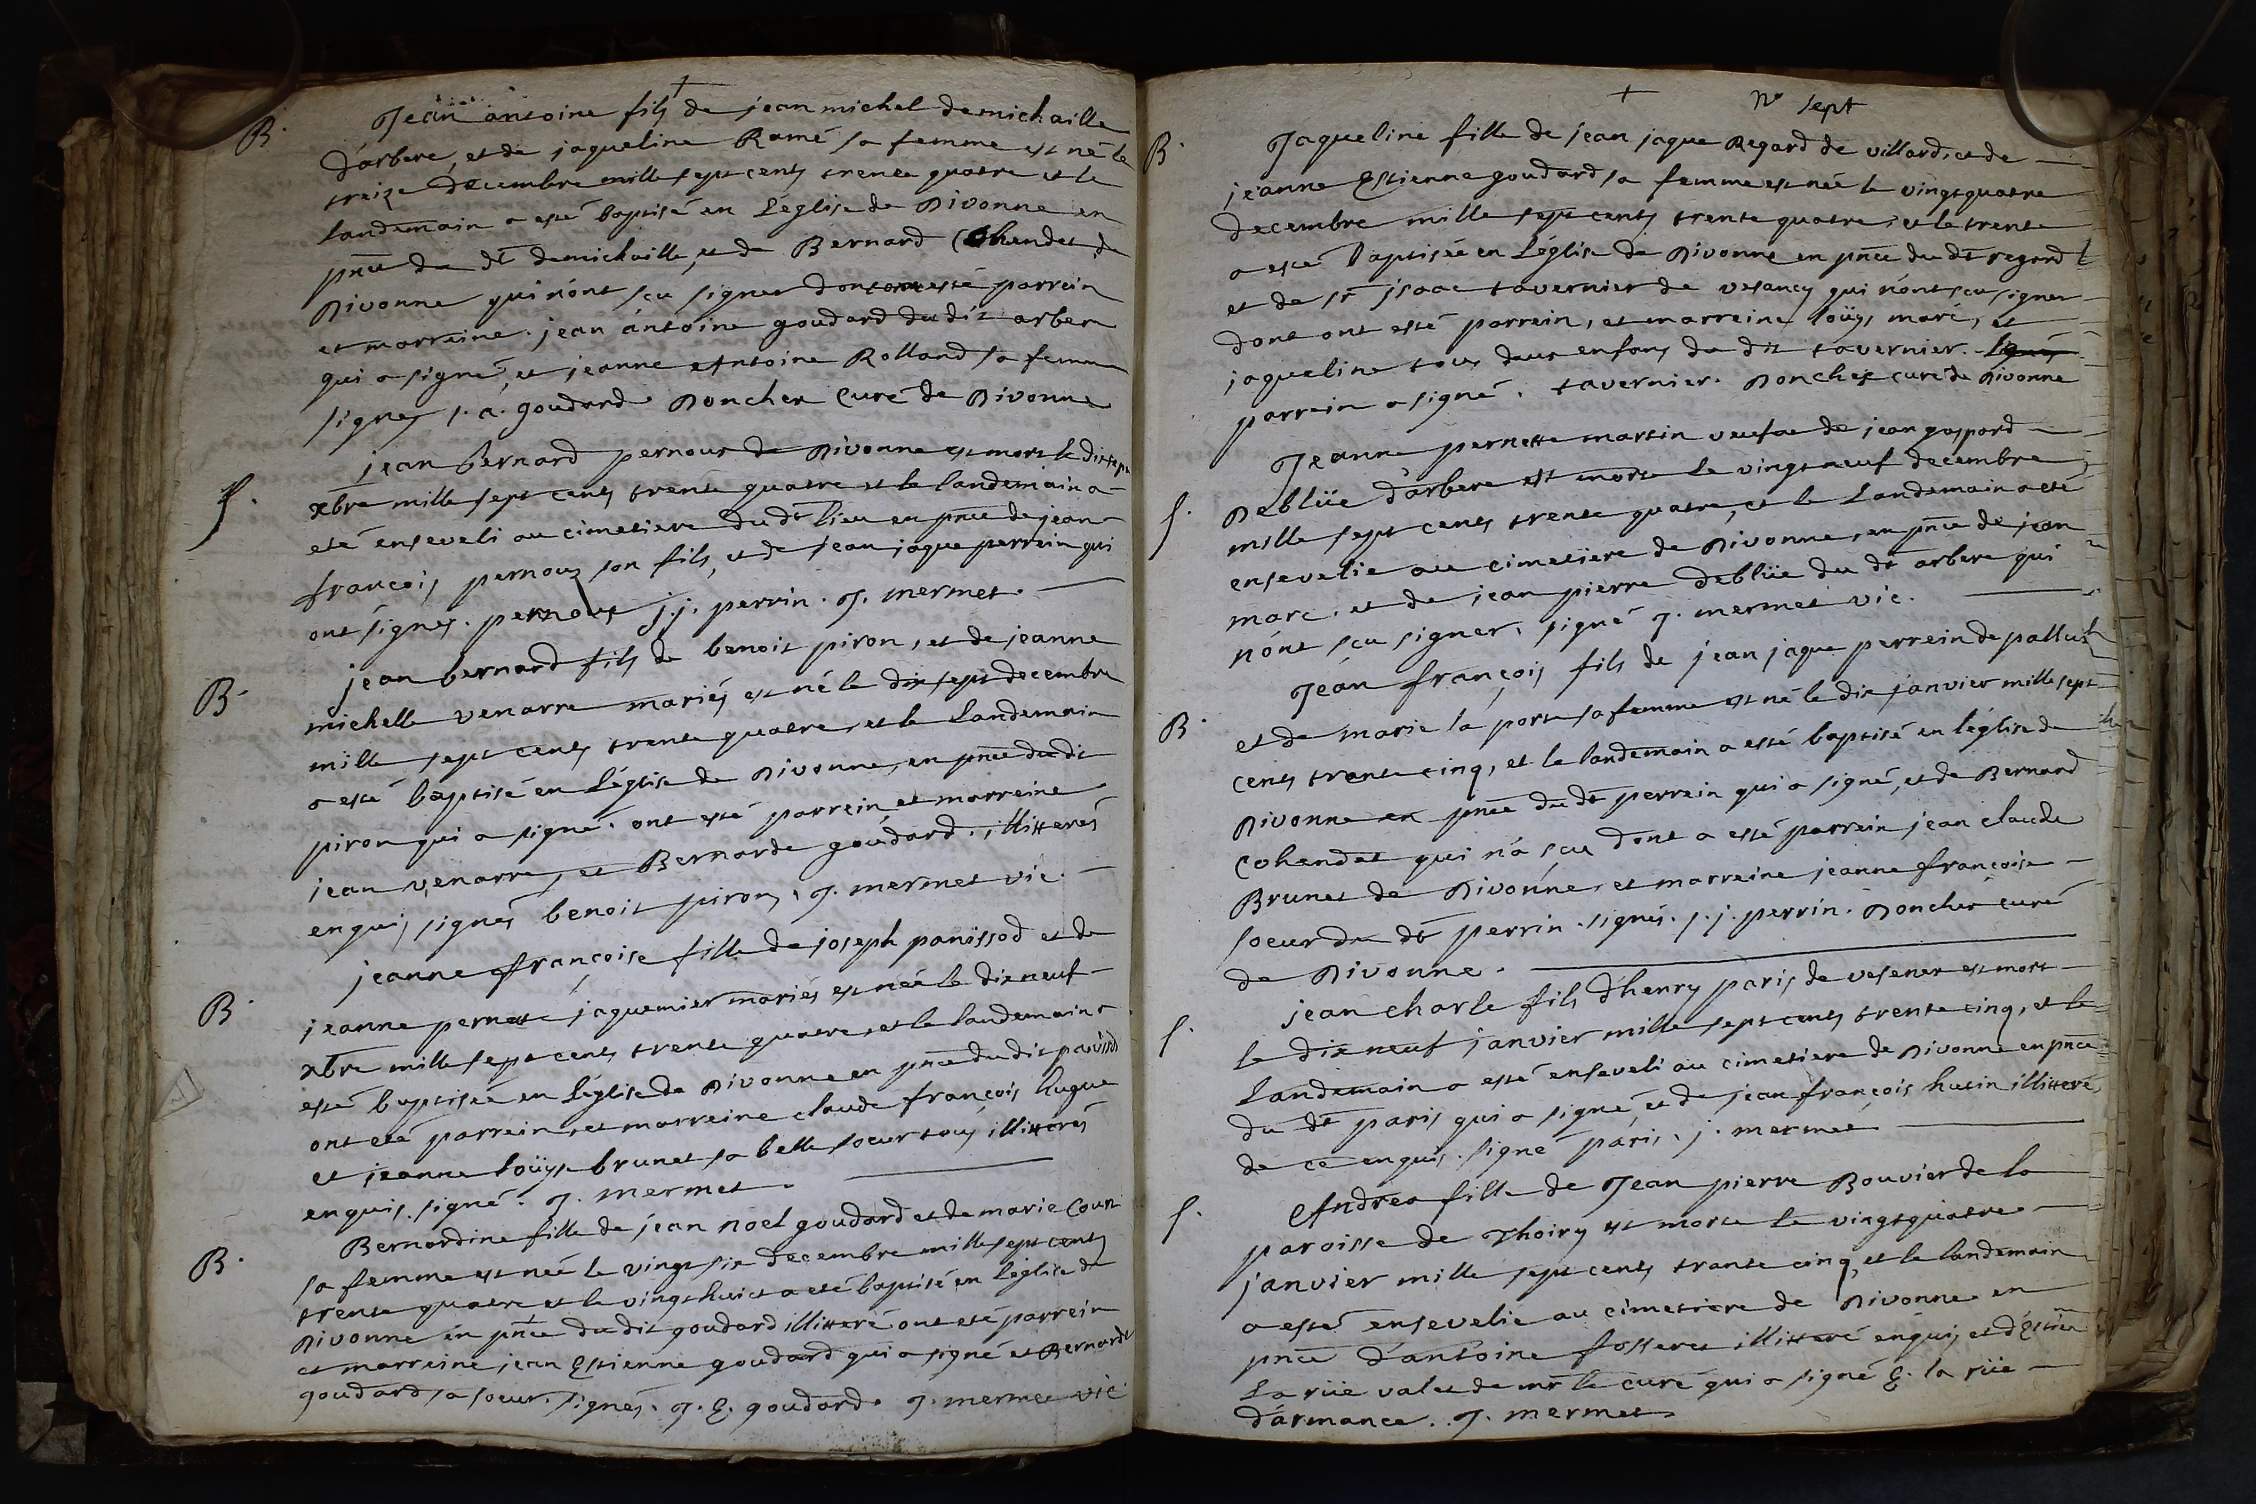 +
B. Jean antoine fils de jean michel demichaille
d'arbere, et de jaqueline Ramé sa femme est né le
treize decembre mille sept cents trente quatre et le
landemain a esté baptisé en L'église de Divonne en
pnce du dt demichaille, et de Bernard Cohendet de
Divonne qui n'ont sçu signer dont ont esté parrein
et marreine jean antoine goudard du dit arbere
qui a signé, et jeanne Antoine Rolland sa femme
signes j. a. goudard Doncher Curé de Divonne
jean bernard pernoux de Divonne est mort le dix sept
S. xbre mille sept cents trente quatre et le landemain a
eté enseveli au cimetiere du dt lieu en pnce de jean
françois pernoux son fils, et de jean jaque perrein qui
ont signes. pernoux j. j. perrin. J. mermet.
jean bernard fils de benoit piron, et de jeanne
B. michelle venarre mariés est né le dix sept decembre
mille sept cents trente quatre, et le Landemain
a esté baptisé en L'église de Divonne, en pnce du dit
piron qui a signé. ont esté parrein et marreine
jean venarre, et Bernarde goudard. illitterés
enquis signés benoit piron, J. mermet vic.
jeanne françoise fille de joseph panissod et de
B. jeanne pernette jaquemier mariés est née le dix neuf
xbre mille sept cents trente quatre, et le landemain a
esté baptisée en L'église de Divonne en pnce du dit panissod
ont eté parrein, et marreine claude françois hugue
et jeanne loüyse brunet sa belle soeur tous illitterés
enquis. signé. J. mermet.
Bernardine fille de jean noel goudard et de marie
B. sa femme est née le vingt six decembre mille sept cents
trente quatre et le vingt huict a eté baptisé en L'église de
Divonne en pnce du dit goudard illitteré ont eté parrein
et marreine jean Estienne goudard qui a signé et Bernarde
goudard sa soeur. signés. J. E. goudard. J. mermet vic
+ No sept
B. Jaqueline fille de jean jaque Regard de villard, et de
jeanne Estienne goudard sa femme est née le vingt quatre
decembre mille sept cents trente quatre, et le trente
a esté baptisée en L'église de Divonne en pnce du dt regard
et de sr jsaac tavernier de vesancy qui n'ont sçu signer
dont ont esté parrein, et marreine loüys marc, et
jaqueline tous deux enfans du dit tavernier.
parrein a signé. tavernier. Doncher curé de Divonne
Jeanne pernette martin veufve de jean gaspard
S. Deblüe d'arbere est morte le vingt neuf decembre
mille sept cents trente quatre, et le Landemain a eté
ensevelie au cimetiere de Divonne, en pnce de jean
marc, et de jean pierre deblüe du dt arbere qui
n'ont sçu signer, signé J. mermet vic.
Jean françois fils de jean jaque perrein de
B. et de marie la porte sa femme est né le dix janvier mille sept
cents trante cinq, et le landemain a esté baptisé en l'église de
Divonne en pnce du dt perrein qui a signé, et de Bernard
Cohendet qui n'a sçu dont a esté parrein jean claude
Brunet de Divonne, et marreine jeanne françoise
soeur du dt perrin. signés. j. j. perrin. Doncher curé
de Divonne.
jean charle fils d'henry paris de vesener est mort
S. le dix neuf janvier mille sept cents trente cinq, et le
Landemain a esté enseveli au cimetiere de Divonne en pnce
du dt paris qui a signé, et de jean françois hutin illitteré,
de ce enquis. signé paris. j. mermet
S. Andrea fille de Jean pierre Bouvier de la
paroisse de Thoiry est morte le vingt quatre
janvier mille sept cents trante cinq, et le landemain
a esté ensevelie au cimetiere de Divonne en
pnce d'antoine fosseret illitteré enquis et
La rüe valet de mr le curé qui a signé E. la rüe
d'armance. J. mermet.